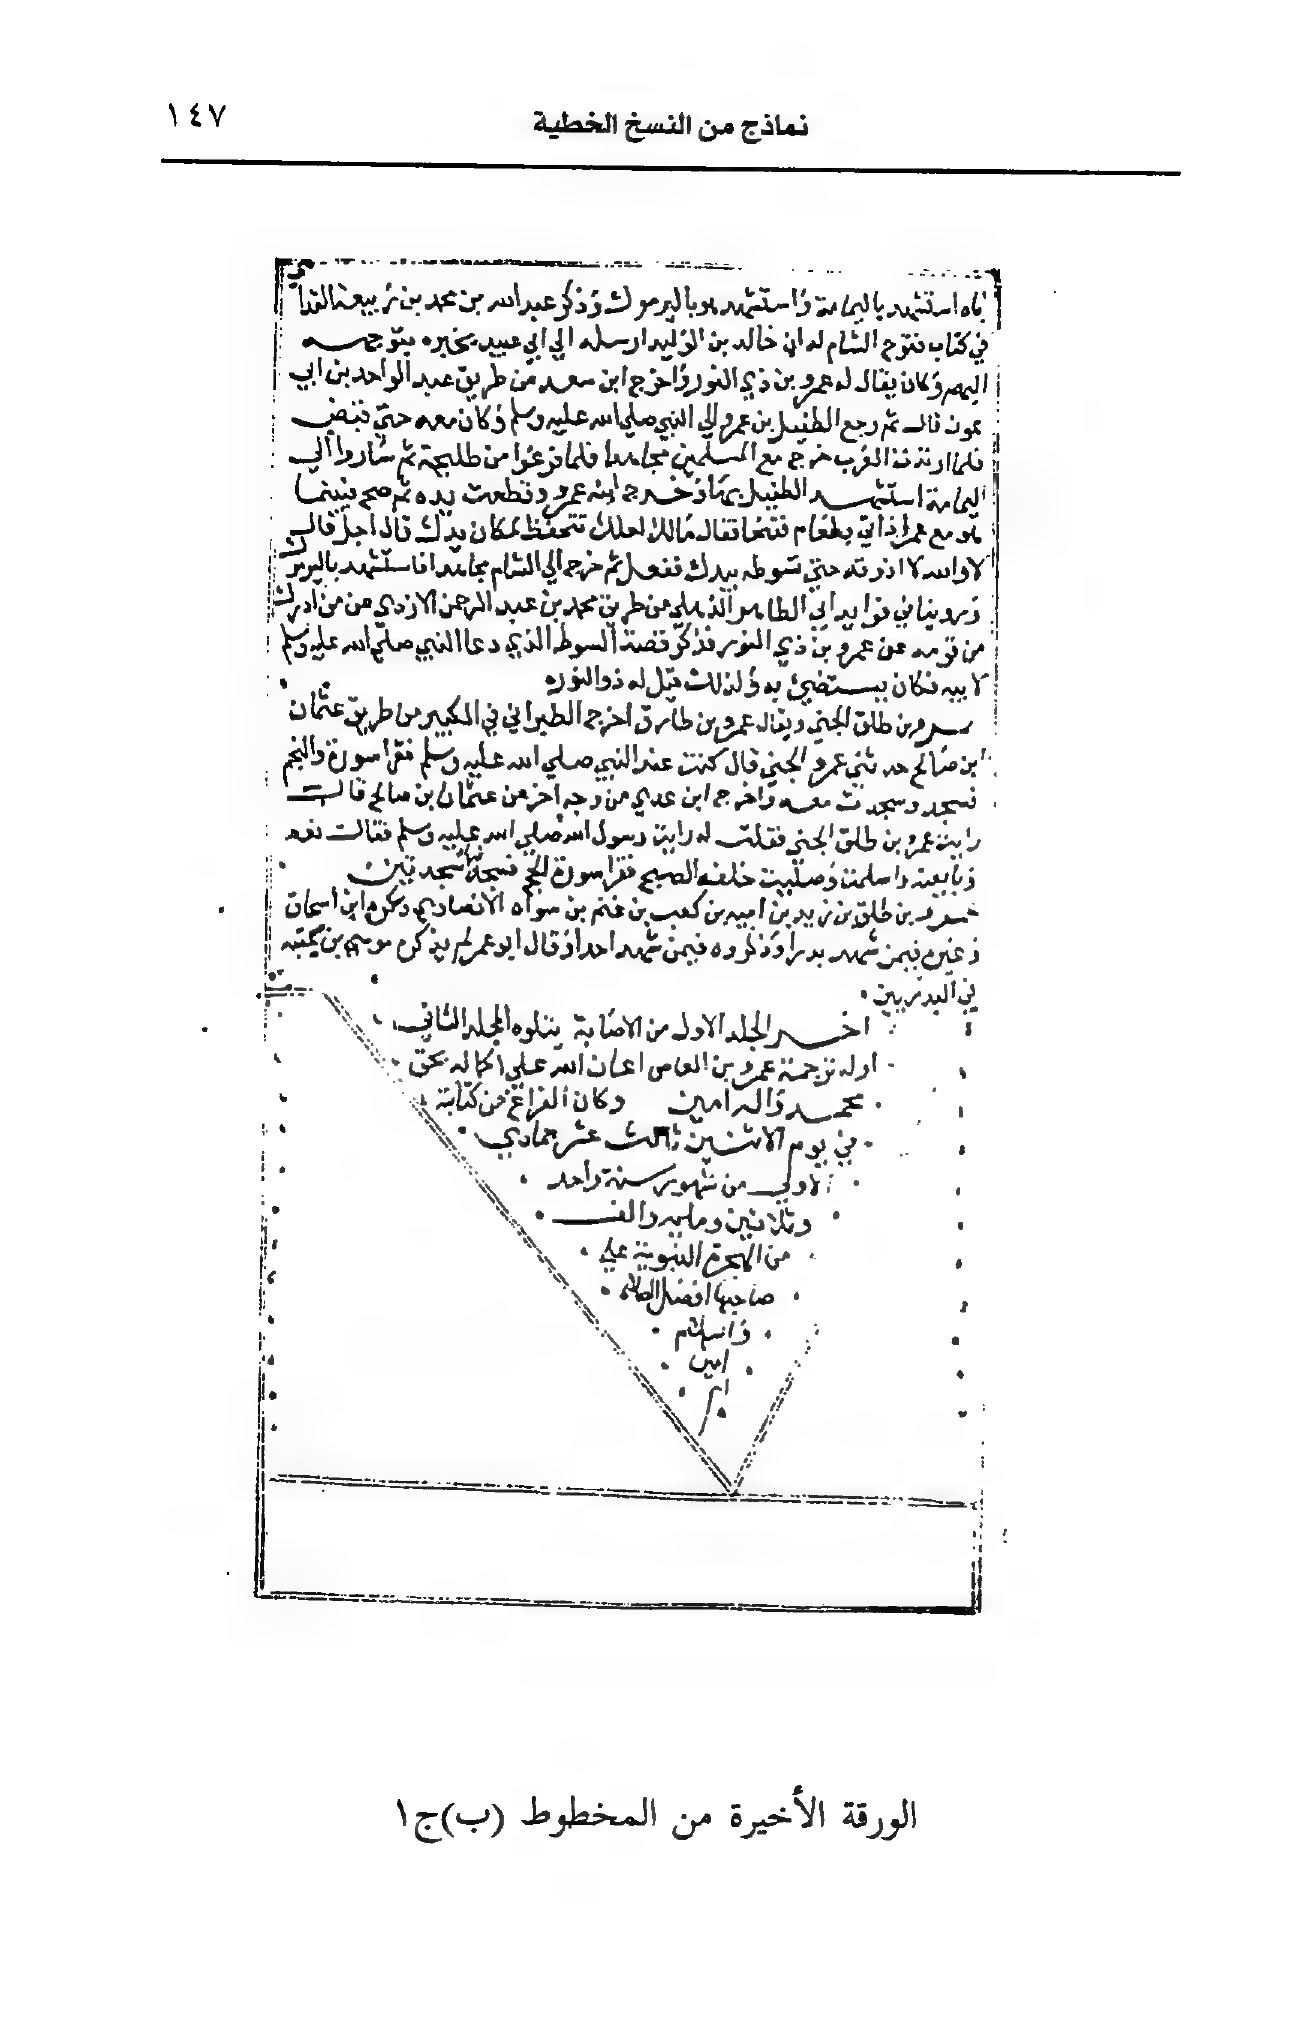 نماذج من النسخ الخطية
١٤٧
اباه استشهد باليمامة واستشهد هو باليرموك وذكر عبدالله بن محمد بن ربيعة القدا
في كتاب فتوح الشام له ان خالد بن الوليد ارسله الي ابي عبيد يخبره بتوجهه
اليهم وكان يقال له عمرو بن ذي النور واخرج ابن سعد من طريق عبد الواحد بن ابي
عون قال ثم رجع الطفيل بن عمرو الي النبي صلي الله عليه وسلم وكان معه حتي قبض
فلما ارتدت العرب خرج مع المسلمين مجاهدا فلما فرغوا من طليحة ثم ساروا الي
اليمامة استشهد الطفيل بها وخرج ابنه عمرو وقطعت يده ثم صح فبينما
هو مع عمر اذ اتي بطعام فتنحا فقال مالك لعلك تتحفظ لمكان يدك قال اجل قال
لا والله لا اذوقه حتي تسوطه بيدك ففعل ثم خرج الي الشام مجاهدا فاستشهد باليرموك
وروينا في فوايد ابي الطاهر الذهلي من طريق محمد بن عبد الرحمن الازدي عن من ادرك
من قومه عن عمرو بن ذي النور فذكر قصة السوط الذي دعا النبي صلي الله عليه وسلم
لابيه فكان يستضئ به ولذلك قيل له ذو النور
عمرو بن طلق الجني ويقال عمرو بن طارق اخرج الطبراني في الكبير من طريق عثمان
ابن صالح حدثني عمرو الجني قال كنت عند النبي صلي الله عليه وسلم فقرا سورة والنجم
فسجد وسجدت معه واخرج ابن عدي من وجه اخر عن عثمان بن صالح قال
رايت عمرو بن طلق الجني فقلت له رايت رسول الله صلي الله عليه وسلم فقال نعم
وبايعته واسلمت وصليت خلفه الصبح فقرا سورة الحج فسجد فيها سجدتين
عمرو بن طلق بن زيد بن امية بن كعب بن غنم بن سواه الانصاري ذكره ابن اسحاق
وغيره فيمن شهد بدرا وذكروه فيمن شهد احدا وقال ابو عمر لم يذكره موسي بن عقبة
في البدريين
اخر المجلد الاول من الاصابة يتلوه المجلد الثاني
اوله ترجمة عمرو بن العاص اعان الله علي اكماله بحق
محمد واله امين وكان الفراغ من كتابة
في يوم الاثنين ثالث عشر جمادي
الاولي من شهور سنة واحد
وثلاثين وماييه والف
من الهجرة النبوية علي
صاحبها افضل الصلاة
والسلام
امين
الورقة الأخيرة من المخطوط (ب)ج١